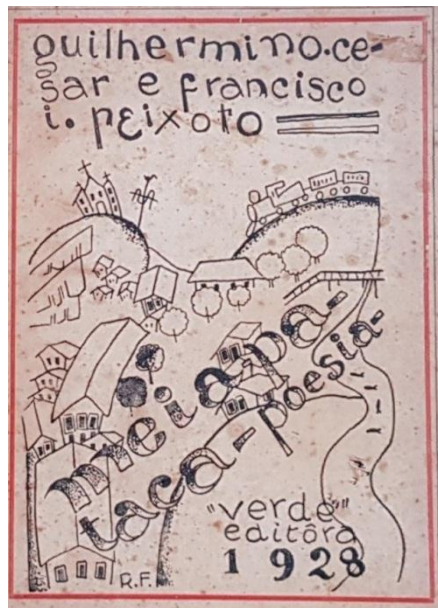 guilhermino.ce-
sar e francisco
i. peixoto
meia pa-
taca-poesia-
"verde"
editôra
1928
R.F.